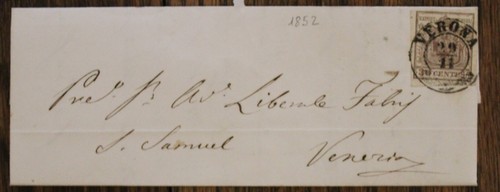 1852
VERONA
29
11
30 CENTES
Preg. Sr. Avv. Liberale Fabris
S. Samuel
Venezia